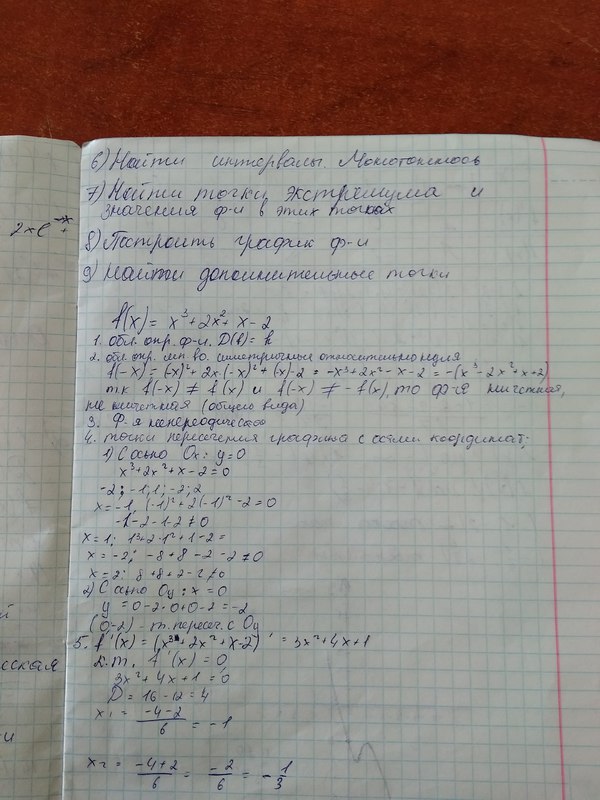 6) Найти интервалы. Монотонность
7) Найти точки экстремума и
значения ф-и в этих точках
2xe
8) Построить график ф-и
9) Найти дополнительные точки
f(x) = x³ + 2x² + x - 2
1. обл. опр. ф-и. D(f) = R
2. обл. опр. мн-во. симметричное относительно нуля
т.к f(-x) ≠ f(x) и f(-x) ≠ -f(x), то ф-я
(общего вида)
3. Ф-я непереодическая
4. точки пересечения графика с осями координат;
1) С осью Ox: y=0
x³+2x²+x-2=0
-2; -1; 1; -2; 2
x=-1,
-1-2-1-2≠0
x=1; 1³+2·1²+1-2=
x=-2; -8+8-2-2≠0
x=2; 8+8+2-2≠0
2) С осью Oy: x=0
y=0-2·0+0-2=-2
(0-2) - т. перес. с Oy
5. f'(x) = (x³+2x²+x-2)' = 3x²+4x+1
к.т. f'(x)=0
3x²+4x+1=0
D=16-12=4
x₁ = -4-2/6 = -1
ская
и
x₂ = -4+2/6 = -2/6 = -1/3